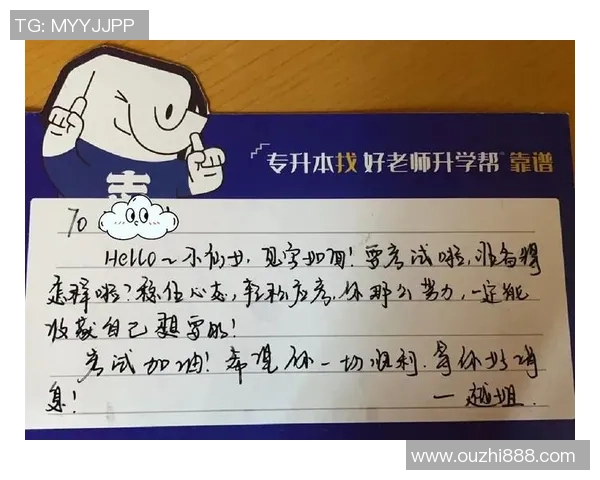 TG: MYYJJPP
专升本找 好老师升学帮 靠谱
志
To
Hello~小仙女,见字如面!要考试啦,准备得
怎样啦?稳住心态,轻松应考,你那么努力,一定能
收获自己想要的!
考试加油!希望你一切顺利.等你好消
息!
— 越姐.
www.ouzhi888.com